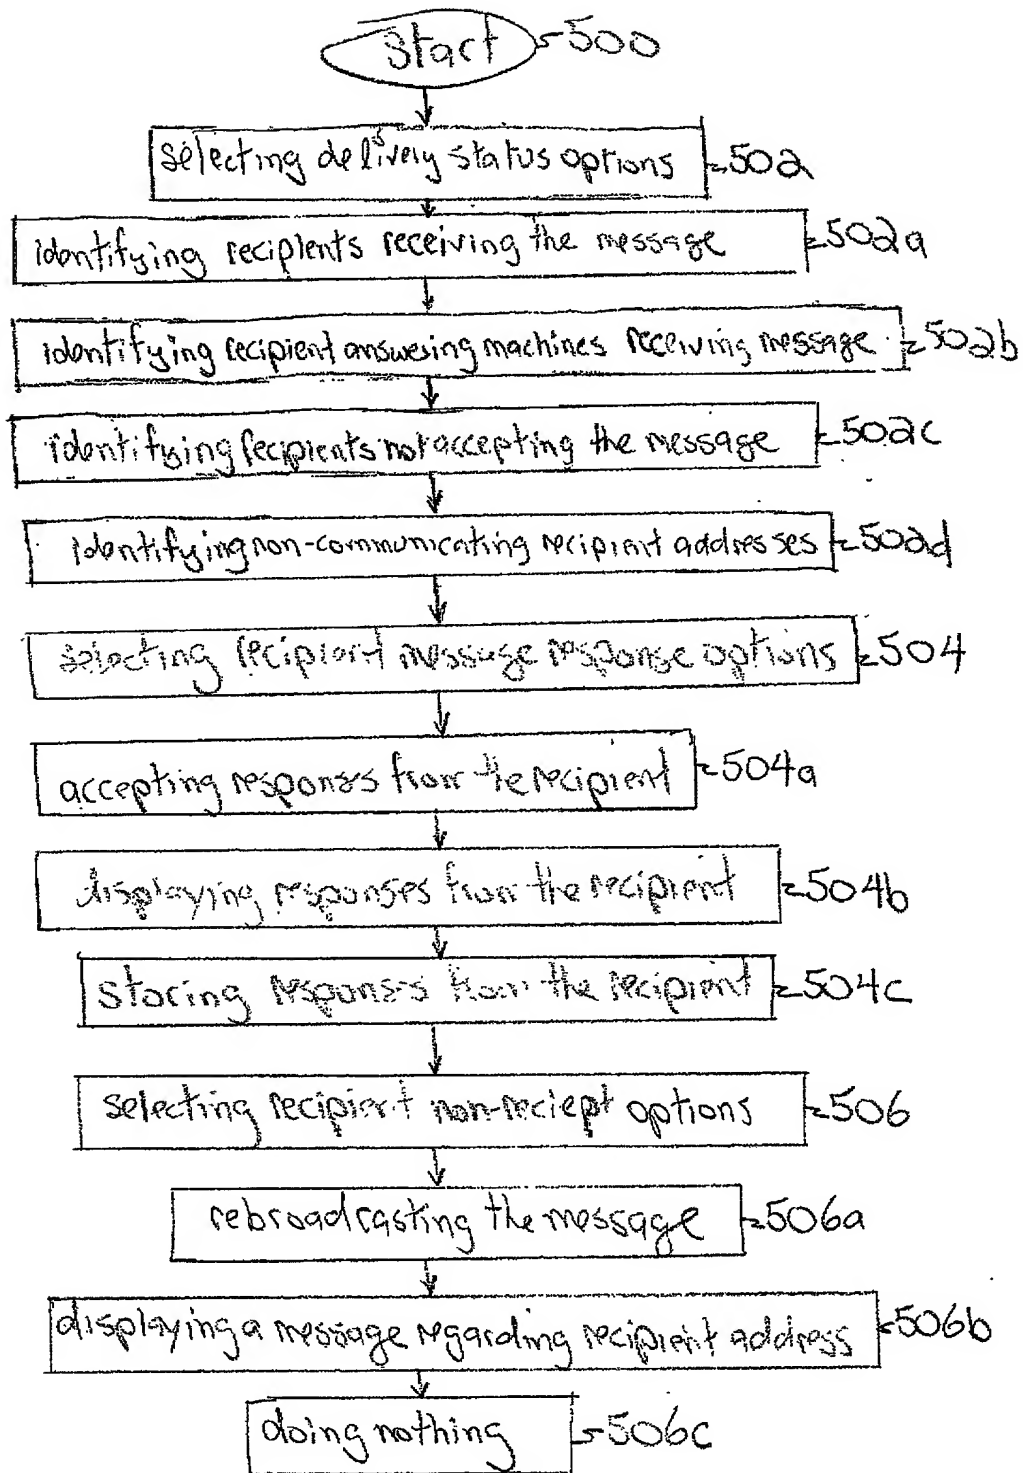 Start 500
selecting delivery status options 502
identifying recipients receiving the message 502a
identifying recipient answering machines receiving message 502b
identifying recipients not accepting the message 502c
identifying non-communicating recipient addresses 502d
selecting recipient message response options 504
accepting responses from the recipient 504a
displaying responses from the recipient 504b
storing responses from the recipient 504c
selecting recipient non-reciept options 506
rebroadcasting the message 506a
displaying a message regarding recipient address 506b
doing nothing 506c